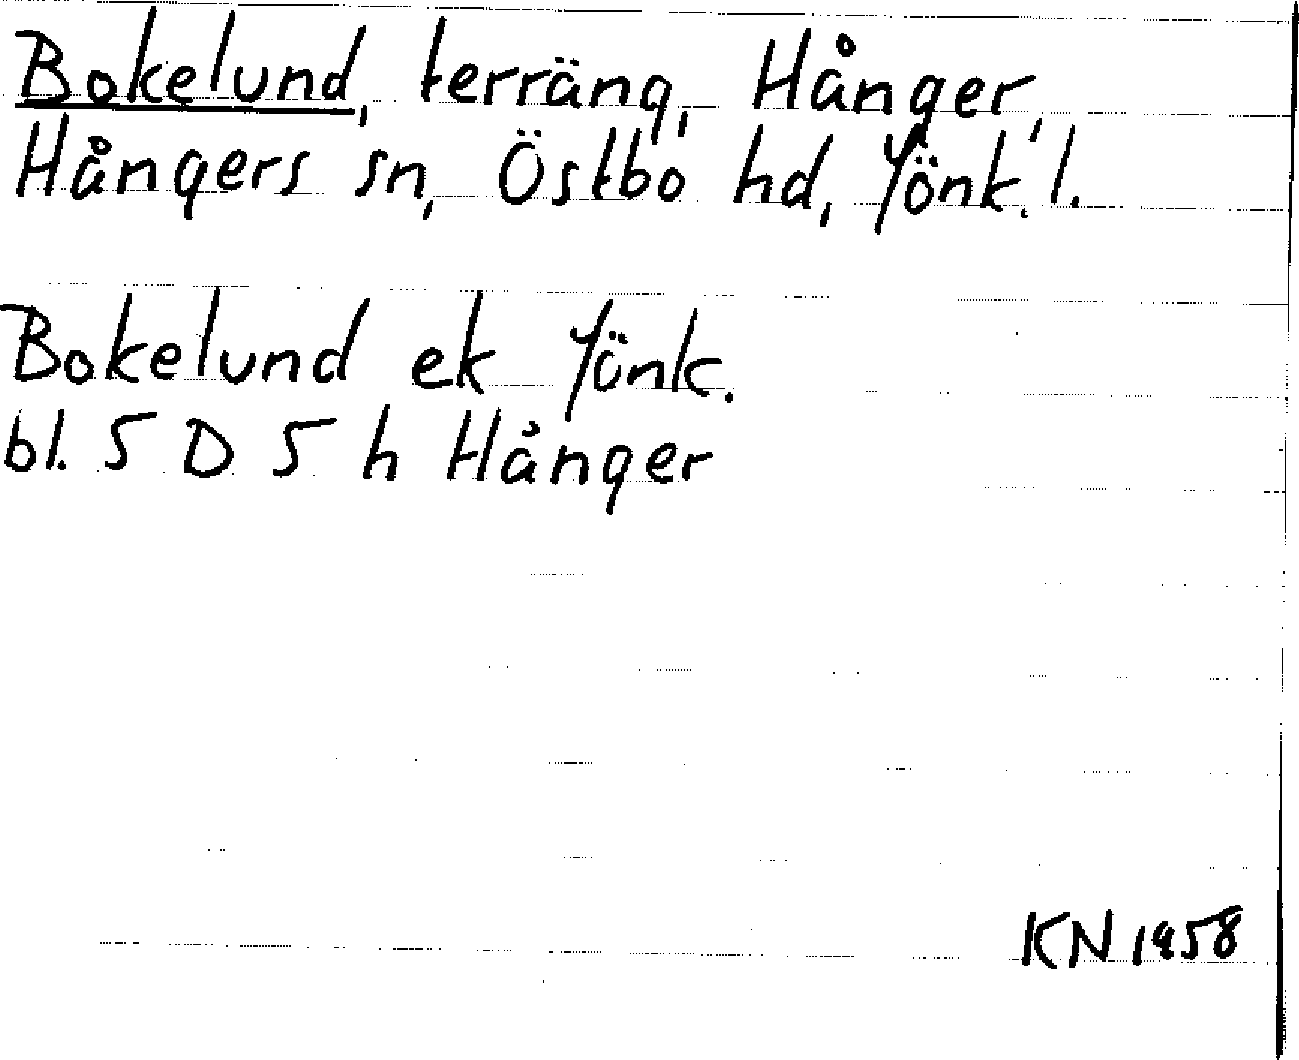 Bokelund, terräng, Hånger,
Hångers sn, Östbo hd, Jönk. l.
Bokelund ek Jönk.
bl. 5 D 5 h Hånger
KN 1958